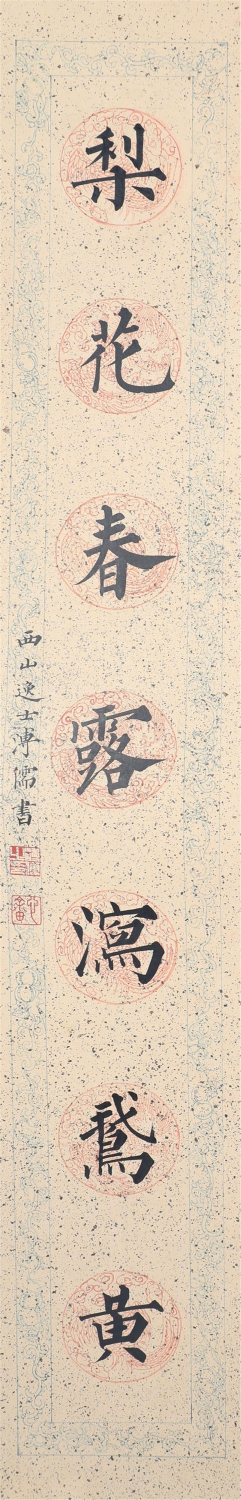 梨花春露瀉鵞黄
西山逸士溥儒書